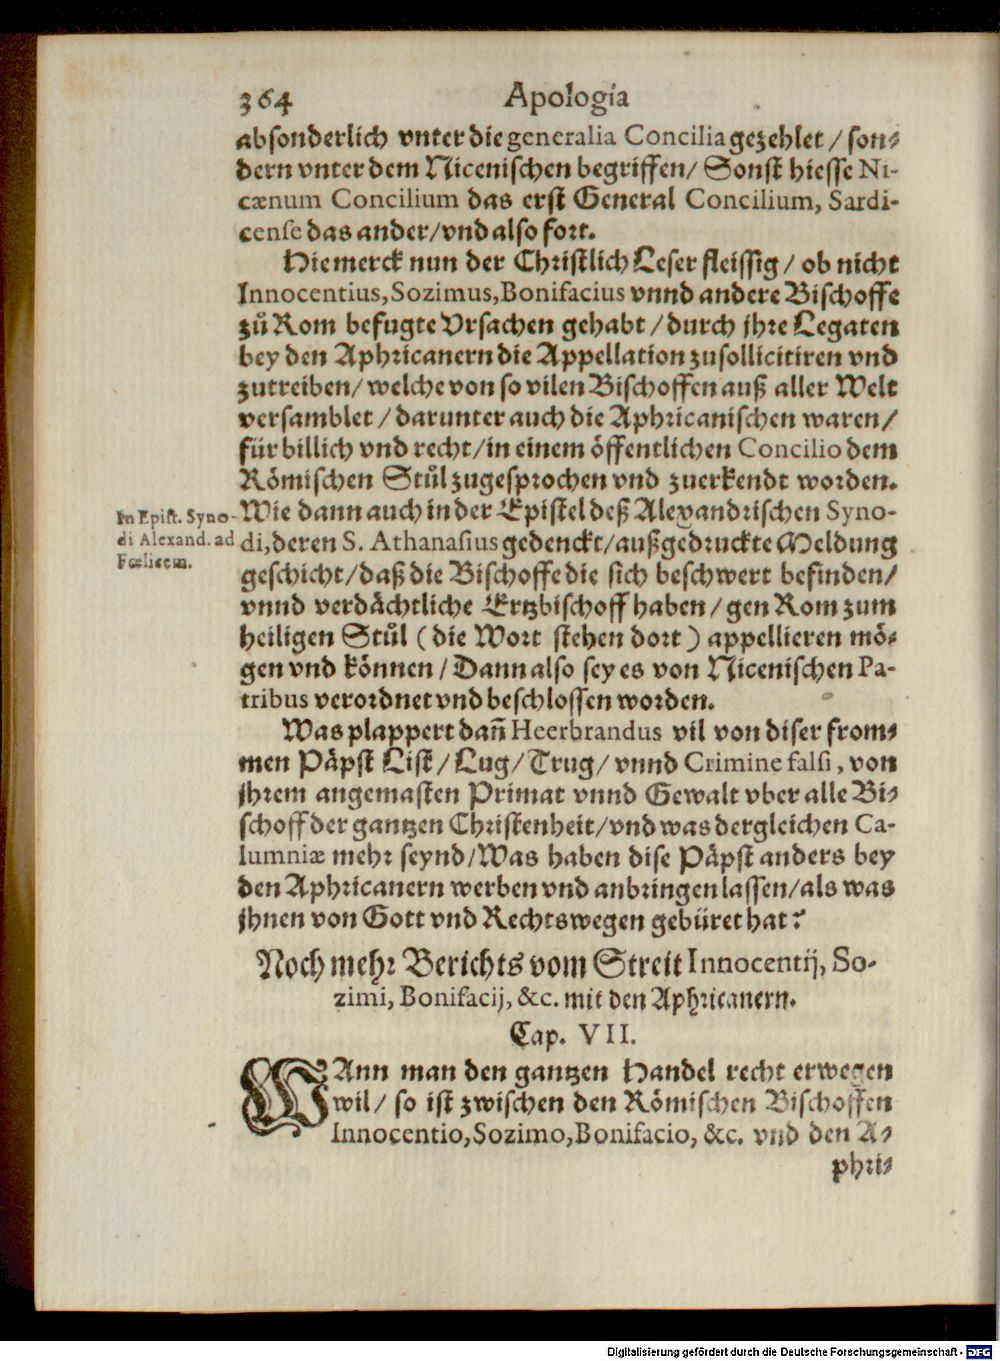 364 Apologia
absonderlich vnter die generalia Concilia gezehlet / son-
dern vnter dem Nicenischen begriffen / Sonst hiesse Ni-
cænum Concilium das erst General Concilium, Sardi-
cense das ander / vnd also fort.
Hie merck nun der Christlich Leser fleissig / ob nicht
Innocentius, Sozimus, Bonifacius vnnd andere Bischoffe
zů Rom befugte Vrsachen gehabt / durch jhre Legaten
bey den Aphricanern die Appellation zusollicitiren vnd
zutreiben / welche von so vilen Bischoffen auß aller Welt
versamblet / darunter auch die Aphricanischen waren /
für billich vnd recht / in einem öffentlichen Concilio dem
Römischen Stůl zugesprochen vnd zuerkendt worden.
Wie dann auch in der Epistel deß Alexandrischen Syno-
di, deren S. Athanasius gedenckt / außgedruckte Meldung
geschicht / daß die Bischoffe die sich beschwert befinden /
vnnd verdächtliche Ertzbischoff haben / gen Rom zum
heiligen Stůl ( die Wort stehen dort ) appellieren mö-
gen vnd können / Dann also sey es von Nicenischen Pa-
tribus verordnet vnd beschlossen worden.
In Epist. Syno-
di Alexand. ad
Fœlicem.
Was plappert dañ Heerbrandus vil von diser from-
men Päpst List / Lug / Trug / vnnd Crimine falsi, von
jhrem angemasten Primat vnnd Gewalt vber alle Bi-
schoff der gantzen Christenheit / vnd was dergleichen Ca-
lumniæ mehr seynd / Was haben dise Päpst anders bey
den Aphricanern werben vnd anbringen lassen / als was
jhnen von Gott vnd Rechtswegen gebüret hat?
Noch mehr Berichts vom Streit Innocentij, So-
zimi, Bonifacij, &c. mit den Aphricanern.
Cap. VII.
WAnn man den gantzen Handel recht erwegen
wil / so ist zwischen den Römischen Bischoffen
Innocentio, Sozimo, Bonifacio, &c. vnd den A-
phri-
Digitalisierung gefördert durch die Deutsche Forschungsgemeinschaft - DFG